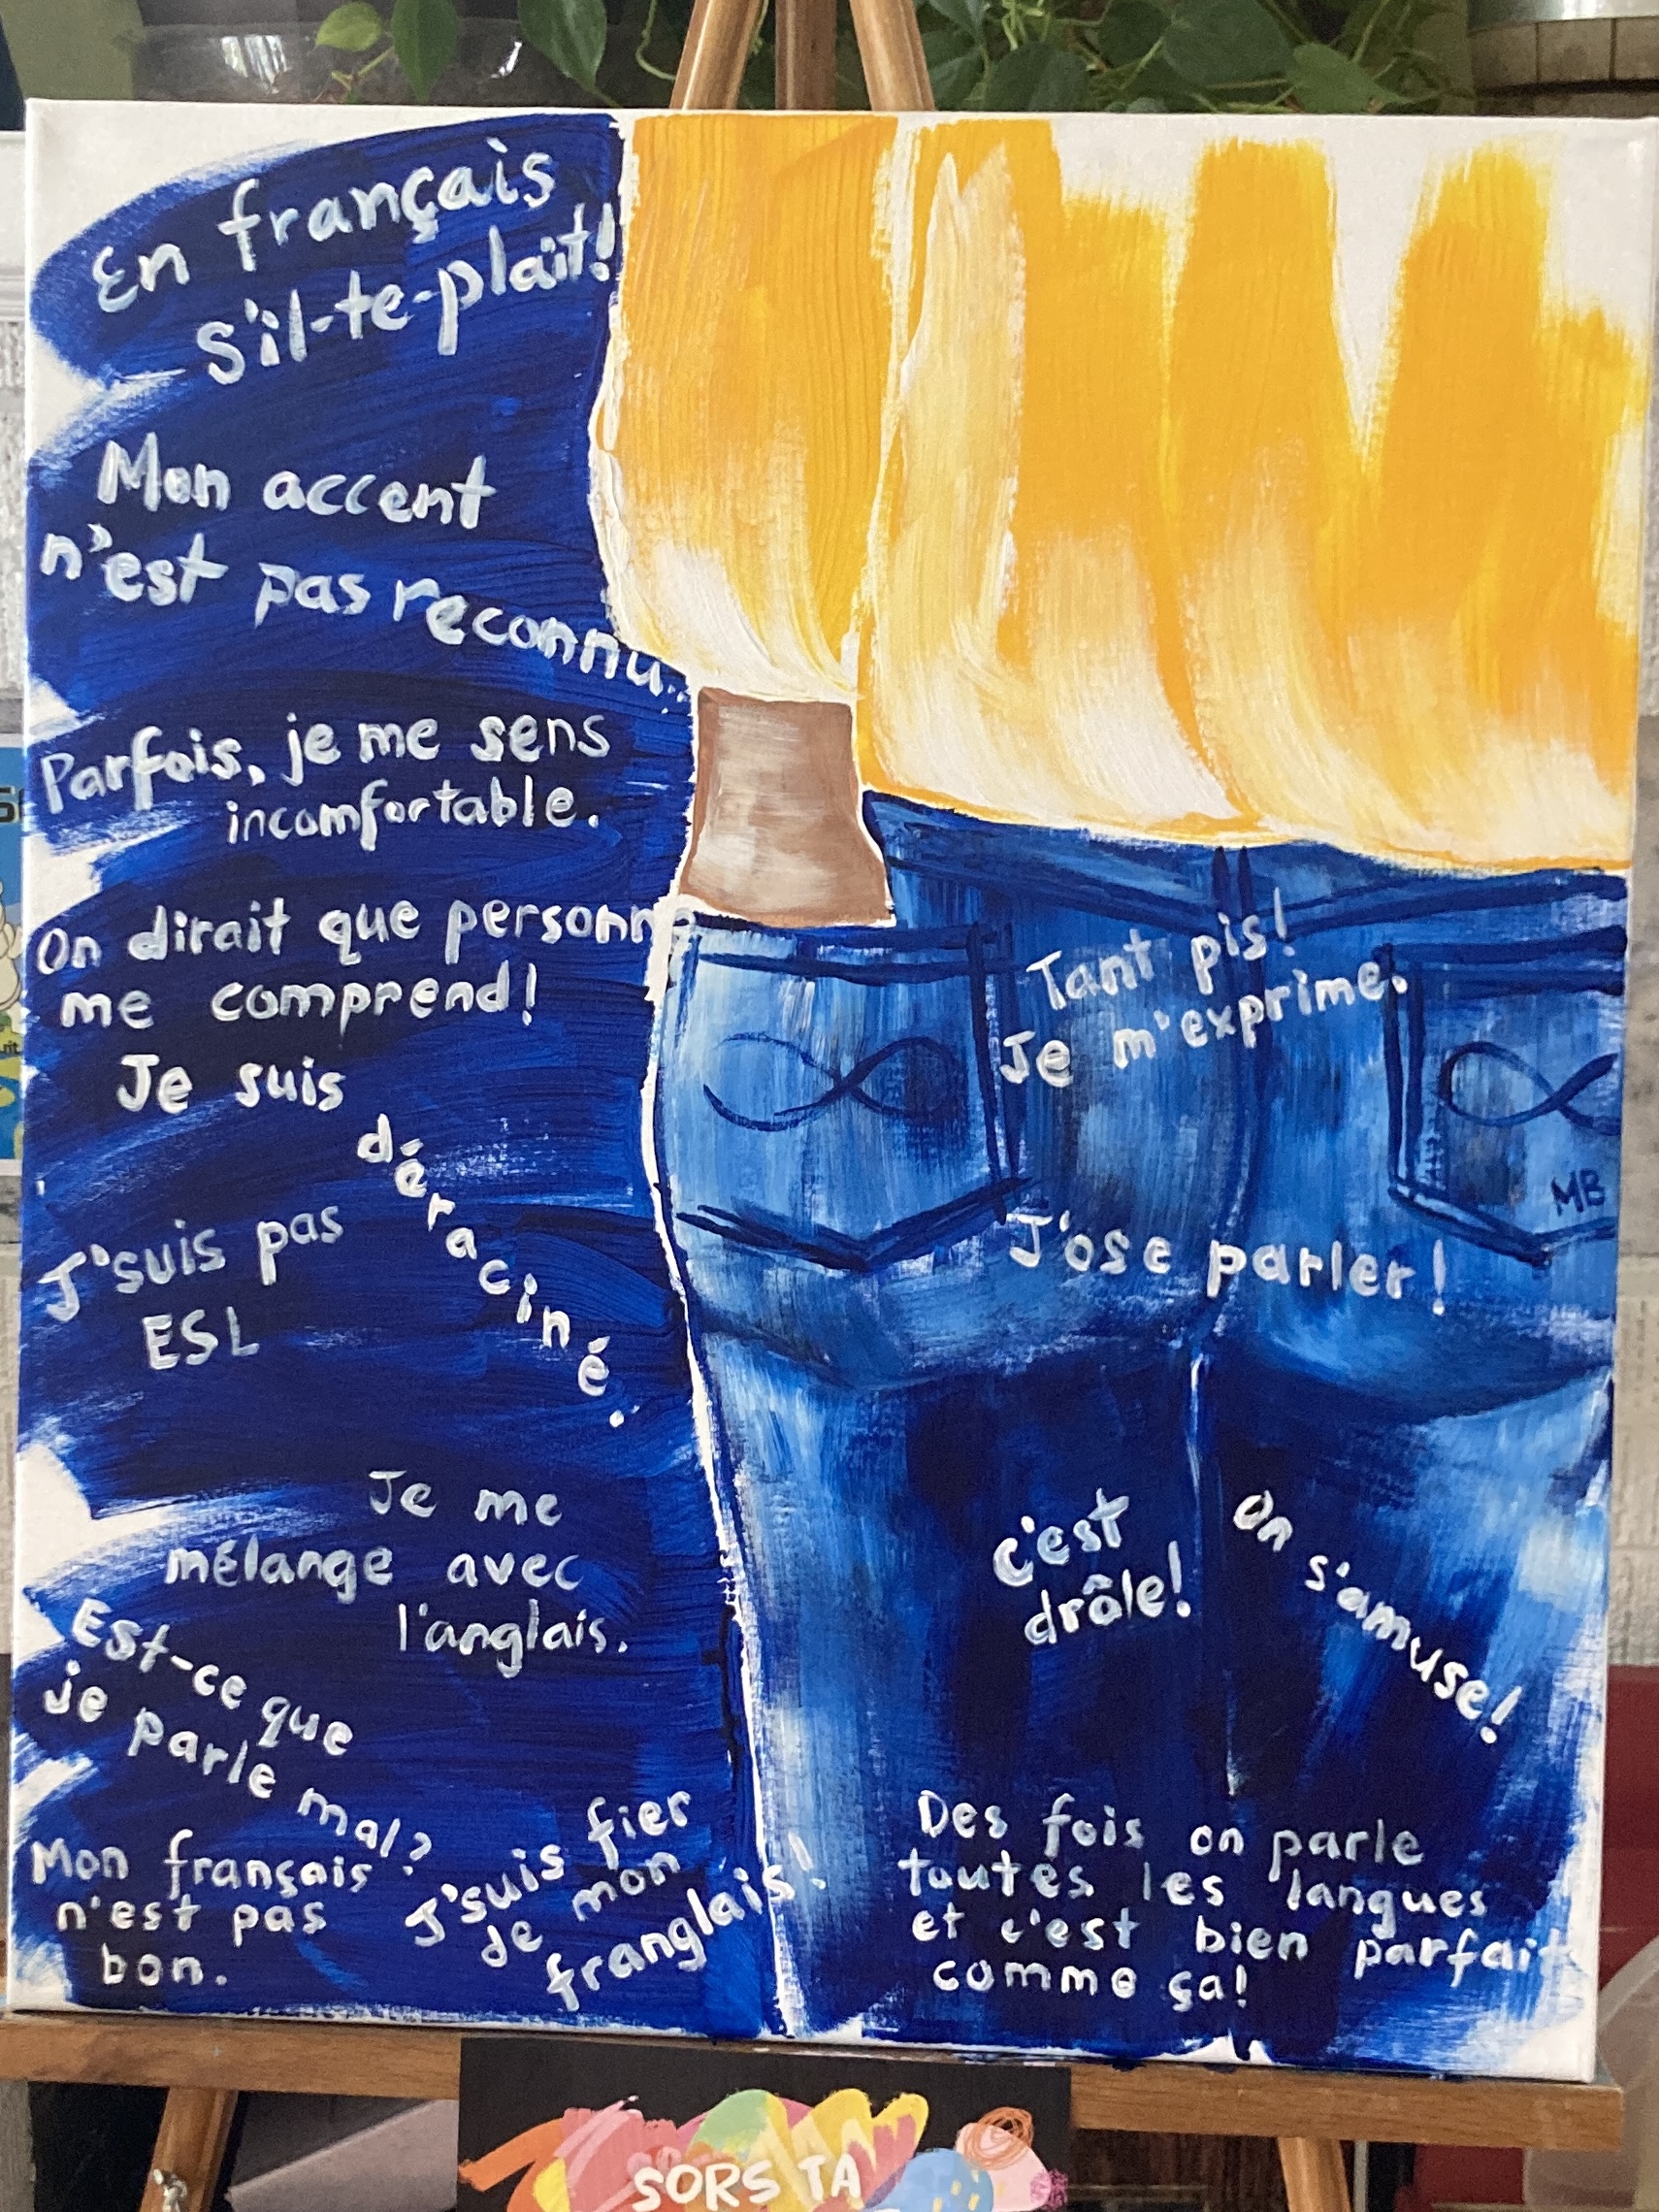 En français
s'il-te-plait!
Mon accent
n'est pas reconnu..
Parfois, je me sens
incomfortable.
On dirait que personne
me comprend!
Je suis
déraciné.
J'suis pas
ESL
Je me
mélange avec
l'anglais.
Est-ce que
je parle mal?
Mon français
n'est pas
bon.
J'suis fier
de mon
franglais!
Tant pis!
Je m'exprime.
MB
J'ose parler!
c'est
drôle!
On s'amuse!
Des fois on parle
toutes les langues
et c'est bien parfait
comme ça!
SORS TA